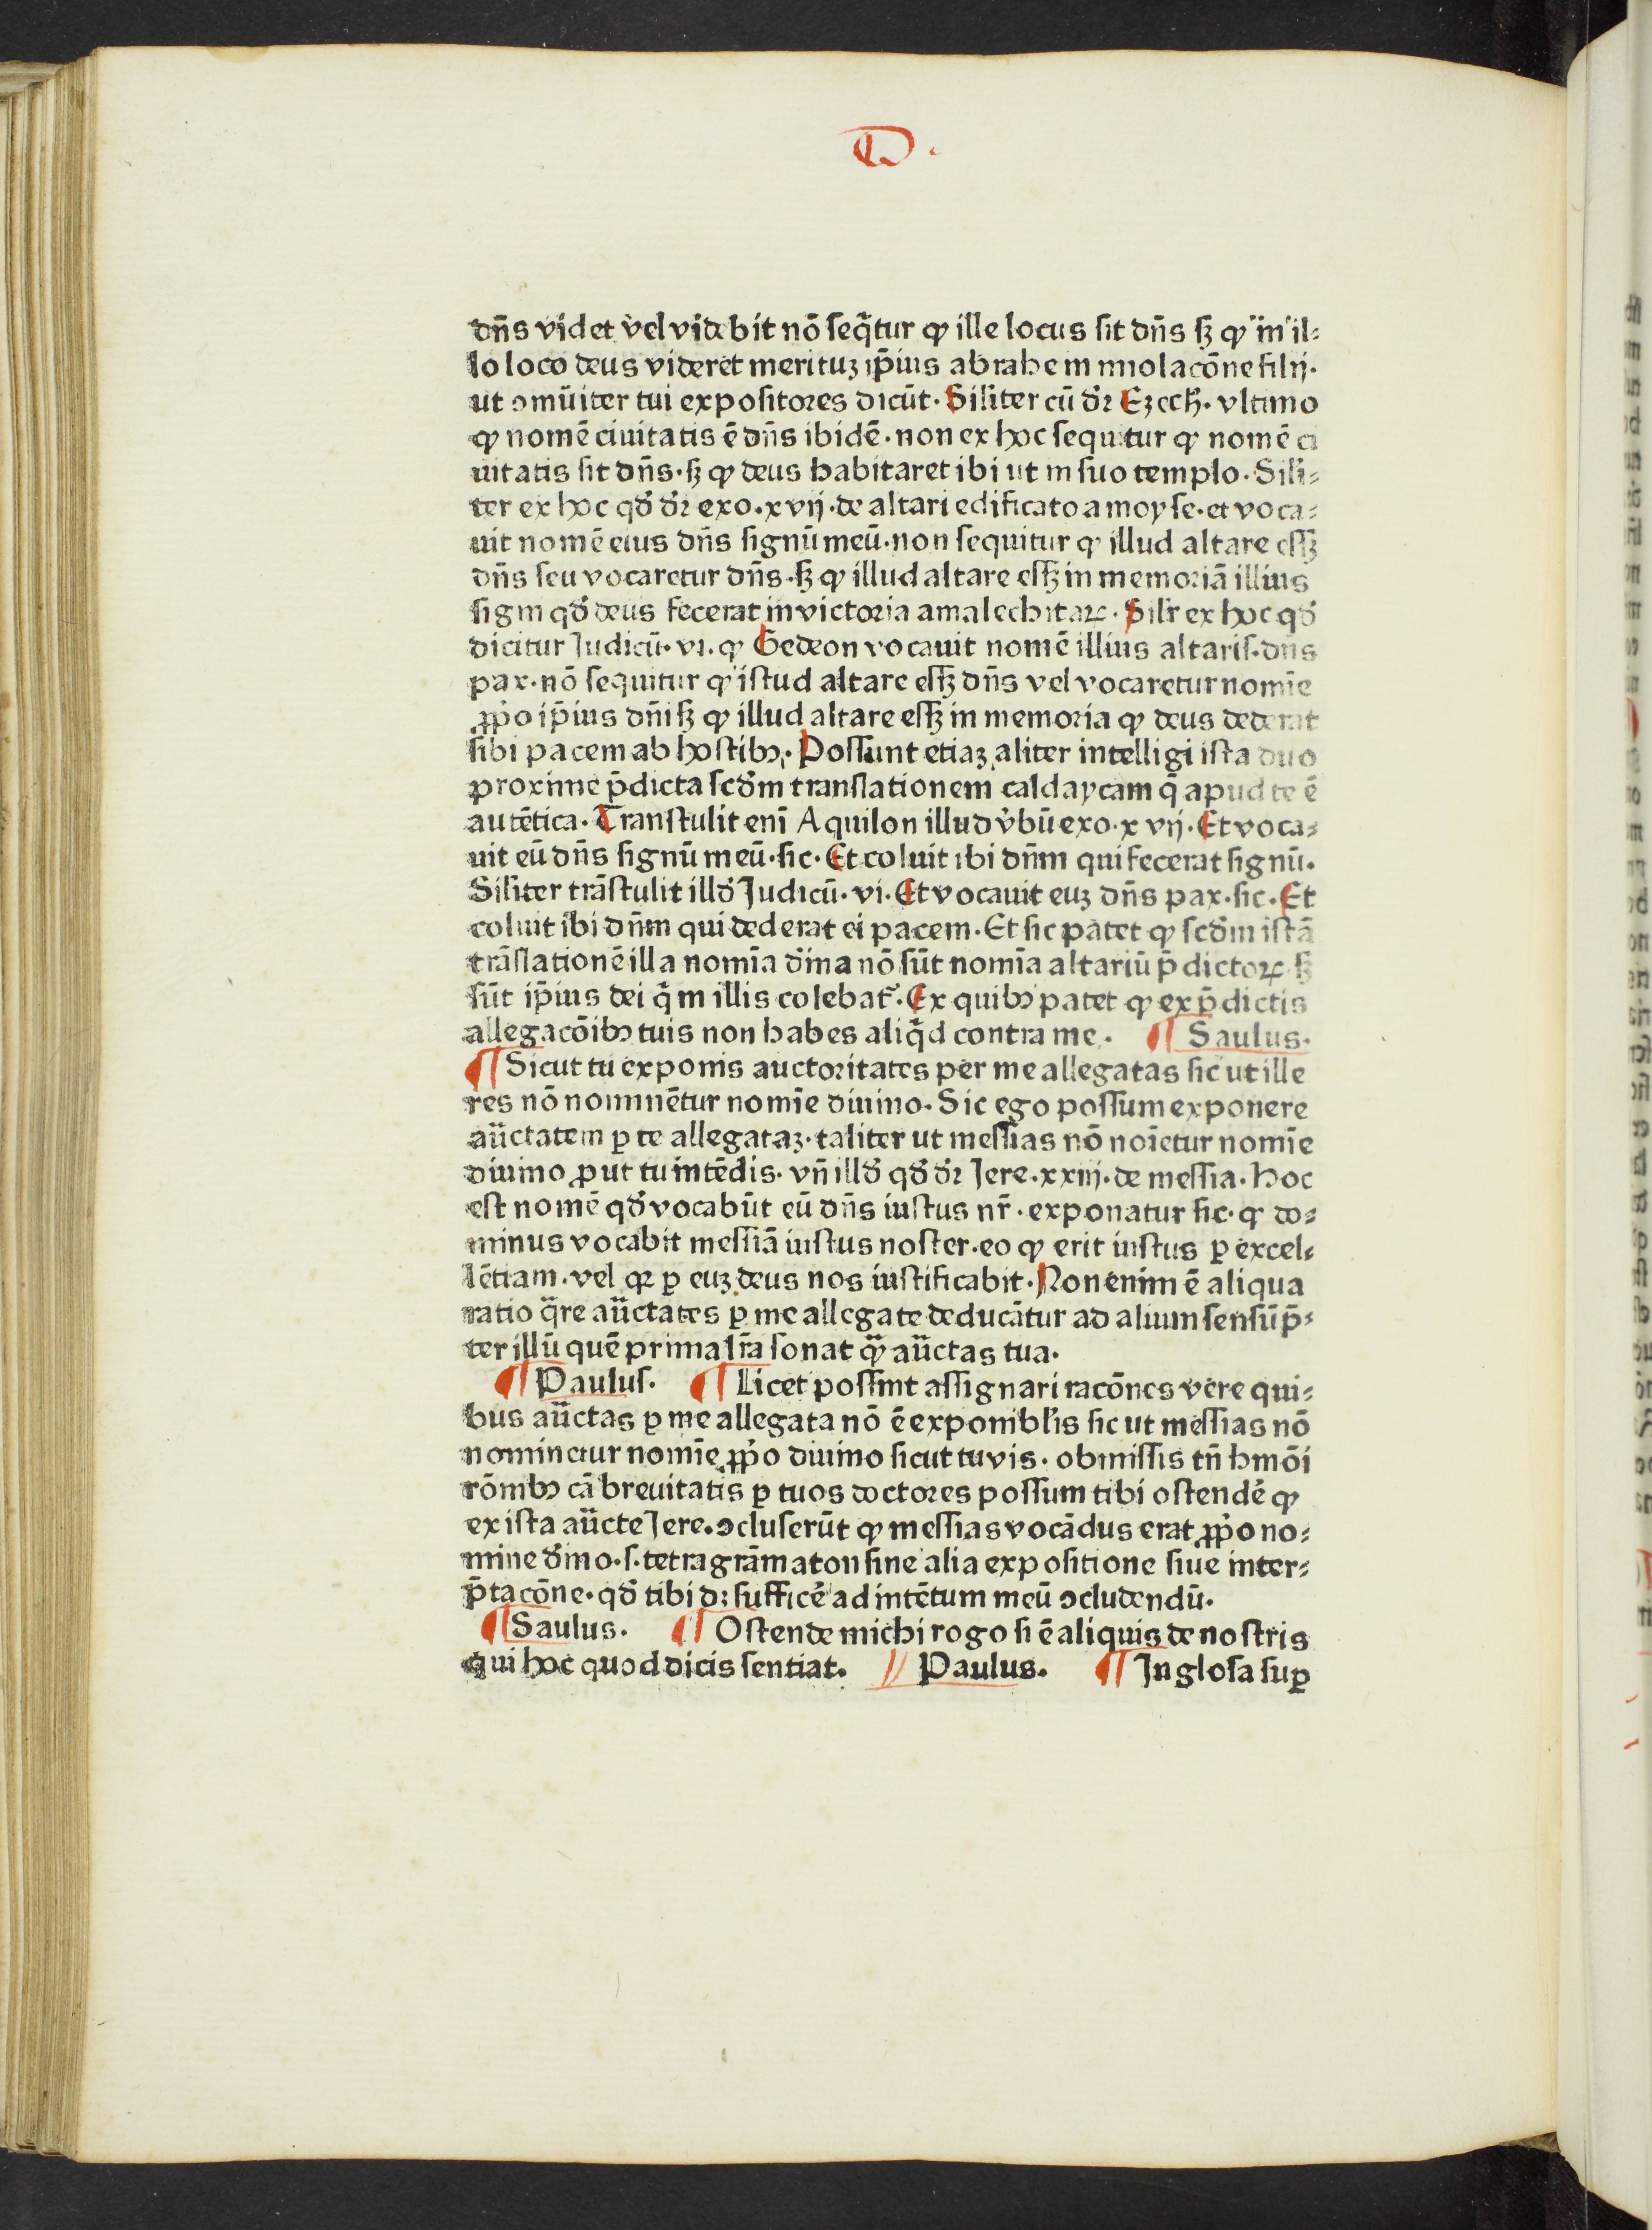 D.
dn̄s videt vel videbit nō seq̄tur ꝙ ille locus sit dn̄s sꝫ ꝙ in il⸗
lo loco deus videret merituꝫ ip̄ius abrahe in īmolacōne filij·
ut ꝯmūiter tui expositores dicūt· Siliter cū dr̄ Ezech̄· vltimo
ꝙ nomē ciuitatis ē dn̄s ibidē· non ex hoc sequitur ꝙ nomē ci
uitatis sit dn̄s· sꝫ ꝙ deus habitaret ibi ut in suo templo· Sili⸗
ter ex hoc qd̄ dr̄ exo· xvij· de altari edificato a moyse· et voca⸗
uit nomē eius dn̄s signū meū· non sequitur ꝙ illud altare essꝫ
dn̄s seu vocaretur dn̄s· sꝫ ꝙ illud altare essꝫ in memoriā illius
signi qd̄ deus fecerat in victoria amalechitaꝝ· Silr̄ ex hoc qd̄
dicitur Judicū· vi· ꝙ Gedeon vocauit nomē illius altaris· dn̄s
pax· nō sequitur ꝙ istud altare essꝫ dn̄s vel vocaretur nomīe
ꝓpo ip̄ius dn̄i sꝫ ꝙ illud altare essꝫ in memoria ꝙ deus dederat
sibi pacem ab hostibꝰ· Possunt etiaꝫ aliter intelligi ista duo
proxime p̄dicta scd̄m translationem caldaycam q̄ apud te ē
autētica· Transtulit enī Aquilon illud v̄bū exo· xvij· Et voca⸗
uit eū dn̄s signū meū· sic· Et coluit ibi dn̄m qui fecerat signū·
Siliter trāstulit illd̄ Judicū· vi· Et vocauit euꝫ dn̄s pax· sic· Et
coluit ibi dn̄m qui dederat ei pacem· Et sic patet ꝙ scd̄m istā
trāslationē illa nomīa dīna nō sūt nomīa altariū p̄dictoꝝ sꝫ
sūt ip̄ius dei q̄ in illis colebat᷑· Ex quibꝰ patet ꝙ ex p̄dictis
allegacōibꝰ tuis non habes aliq̄d contra me· ¶ Saulus·
¶ Sicut tu exponis auctoritates per me allegatas sic ut ille
res nō nominētur nomīe diuino· Sic ego possum exponere
auctatem ꝑ te allegataꝫ· taliter ut messias nō noīetur nomīe
diuino ꝓut tu intēdis· vn̄ illd̄ qd̄ dr̄ Jere· xxiij· de messia· Hoc
est nomē qd̄ vocabūt eū dn̄s iustus nr̄· exponatur sic· ꝙ do⸗
minus vocabit messiā iustus noster· eo ꝙ erit iustus ꝑ excel⸗
lētiam· vel qꝛ ꝑ euꝫ deus nos iustificabit· Non enim ē aliqua
ratio q̄re auctates ꝑ me allegate deducātur ad alium sensū p̄⸗
ter illū quē prima lr̄a sonat ꝙ̄ auctas tua·
¶ Paulus· ¶ Licet possint assignari racōnes vere qui⸗
bus auctas ꝑ me allegata nō ē exponiblis sic ut messias nō
nominetur nomīe ꝓpo diuino sicut tu vis· obmissis tn̄ hmōi
rōnibꝰ cā breuitatis ꝑ tuos doctores possum tibi ostendē ꝙ
ex ista aucte Jere· ꝯcluserūt ꝙ messias vocādus erat ꝓpo no⸗
mine dīno· s· tetragrāmaton sine alia expositione siue inter⸗
p̄tacōne· qd̄ tibi dꝫ sufficē ad intētum meū ꝯcludendū·
¶ Saulus· ¶ Ostende michi rogo si ē aliquis de nostris
qui hoc quod dicis sentiat· // Paulus· ¶ In glosa suꝑ